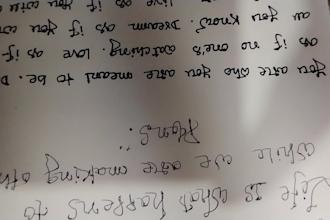 Life Is What happens to
while we are making oth
Plans."
You are who you meant to be. D
as if no one's watching. Love as if
all you know. Dream as if you
live as if you will